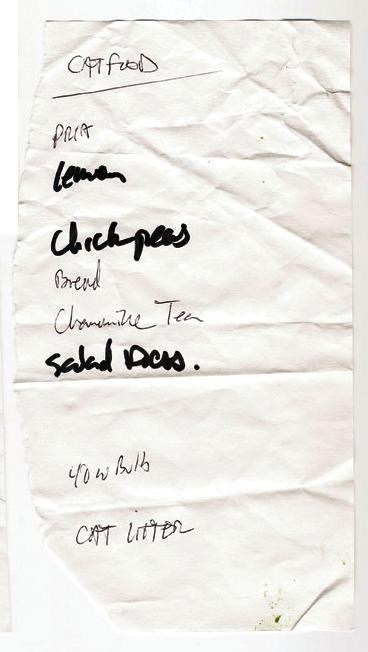 CAT FOOD
PITA
Lemon
Chickpeas
Bread
Chamomile Tea
Salad Dress.
40 w Bulb
CAT LITTER